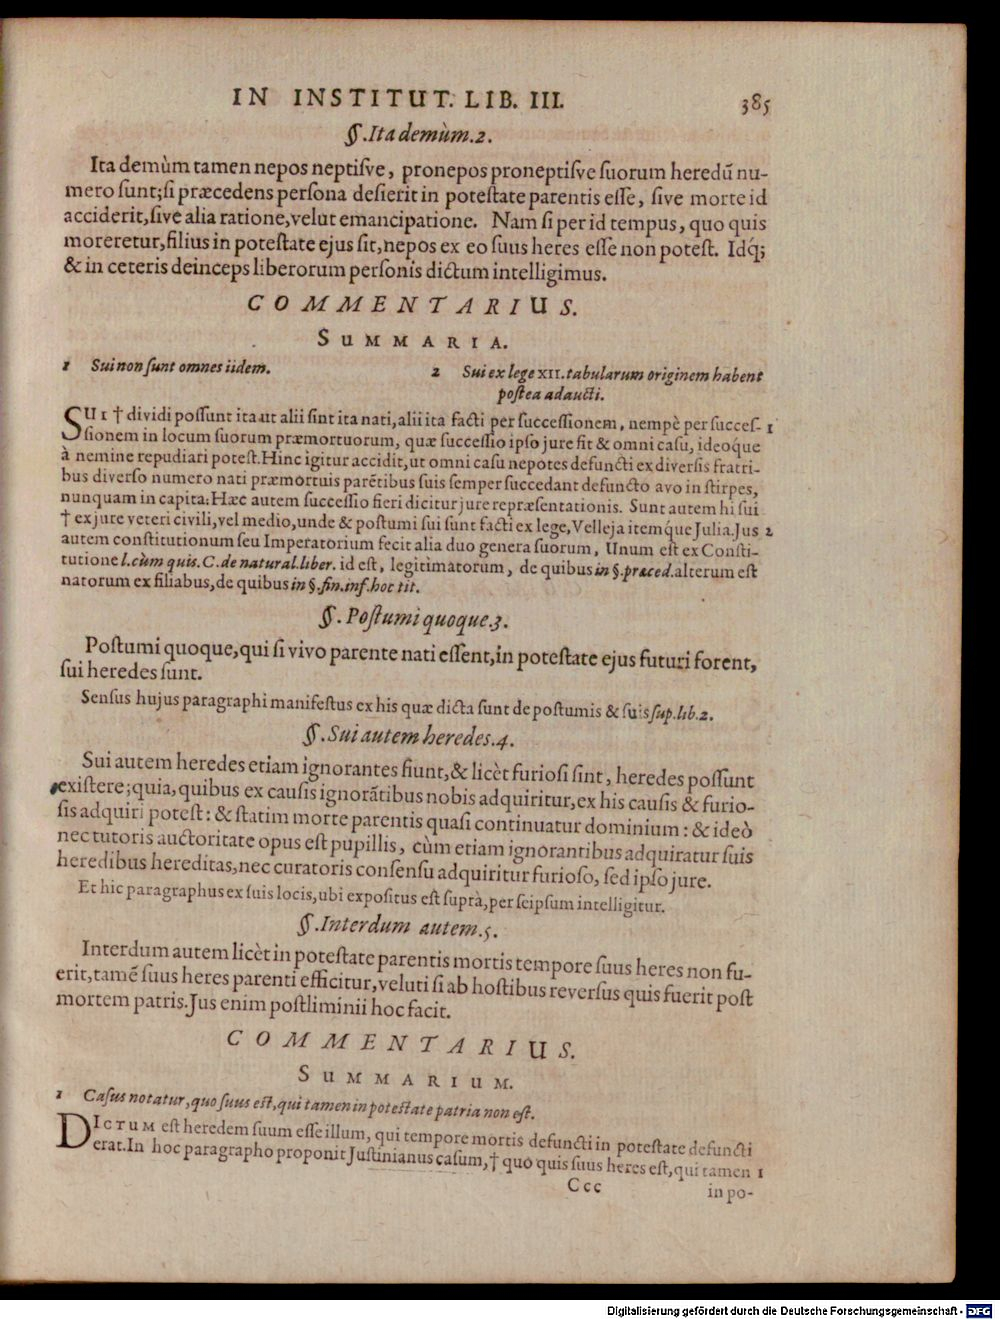 IN INSTITUT. LIB. III. 385
§. Ita demùm. 2.
Ita demùm tamen nepos neptiſve, pronepos proneptiſve ſuorum heredũ nu-
mero ſunt; ſi præcedens perſona deſierit in poteſtate parentis eſſe, ſive morte id
acciderit, ſive alia ratione, velut emancipatione. Nam ſi per id tempus, quo quis
moreretur, filius in poteſtate ejus ſit, nepos ex eo ſuus heres eſſe non poteſt. Idq́;
& in ceteris deinceps liberorum perſonis dictum intelligimus.
COMMENTARIUS.
SUMMARIA.
1 Sui non ſunt omnes iidem.
2 Sui ex lege XII. tabularum originem habent
poſtea adaucti.
SUI † dividi poſſunt ita ut alii ſint ita nati, alii ita facti per ſucceſſionem, nempè per ſucceſ- 1
ſionem in locum ſuorum præmortuorum, quæ ſucceſſio ipſo jure fit & omni caſu, ideoq́ue
à nemine repudiari poteſt. Hinc igitur accidit, ut omni caſu nepotes defuncti ex diverſis fratri-
bus diverſo numero nati præmortuis parẽtibus ſuis ſemper ſuccedant defuncto avo in ſtirpes,
nunquam in capita: Hæc autem ſucceſſio fieri dicitur jure repræſentationis. Sunt autem hi ſui
† ex jure veteri civili, vel medio, unde & poſtumi ſui ſunt facti ex lege, Velleja itemq́ue Julia. Jus 2
autem conſtitutionum ſeu Imperatorium fecit alia duo genera ſuorum, Unum eſt ex Conſti-
tutione l. cùm quis. C. de natural. liber. id eſt, legitimatorum, de quibus in §. præced. alterum eſt
natorum ex filiabus, de quibus in §. fin. inf. hoc tit.
§. Poſtumi quoque. 3.
Poſtumi quoque, qui ſi vivo parente nati eſſent, in poteſtate ejus futuri forent,
ſui heredes ſunt.
Senſus hujus paragraphi manifeſtus ex his quæ dicta ſunt de poſtumis & ſuis ſup. lib. 2.
§. Sui autem heredes. 4.
Sui autem heredes etiam ignorantes fiunt, & licèt furioſi ſint, heredes poſſunt
exiſtere; quia, quibus ex cauſis ignorãtibus nobis adquiritur, ex his cauſis & furio-
ſis adquiri poteſt: & ſtatim morte parentis quaſi continuatur dominium: & ideò
nec tutoris auctoritate opus eſt pupillis, cùm etiam ignorantibus adquiratur ſuis
heredibus hereditas, nec curatoris conſenſu adquiritur furioſo, ſed ipſo jure.
Et hic paragraphus ex ſuis locis, ubi expoſitus eſt ſuprà, per ſeipſum intelligitur.
§. Interdum autem. 5.
Interdum autem licèt in poteſtate parentis mortis tempore ſuus heres non fu-
erit, tamẽ ſuus heres parenti efficitur, veluti ſi ab hoſtibus reverſus quis fuerit poſt
mortem patris. Jus enim poſtliminii hoc facit.
COMMENTARIUS.
SUMMARIUM.
1 Caſus notatur, quo ſuus eſt, qui tamen in poteſtate patria non eſt.
DICTUM eſt heredem ſuum eſſe illum, qui tempore mortis defuncti in poteſtate defuncti
erat. In hoc paragrapho proponit Juſtinianus caſum, † quo quis ſuus heres eſt, qui tamen 1
Ccc in po-
Digitalisierung gefördert durch die Deutsche Forschungsgemeinschaft - DFG